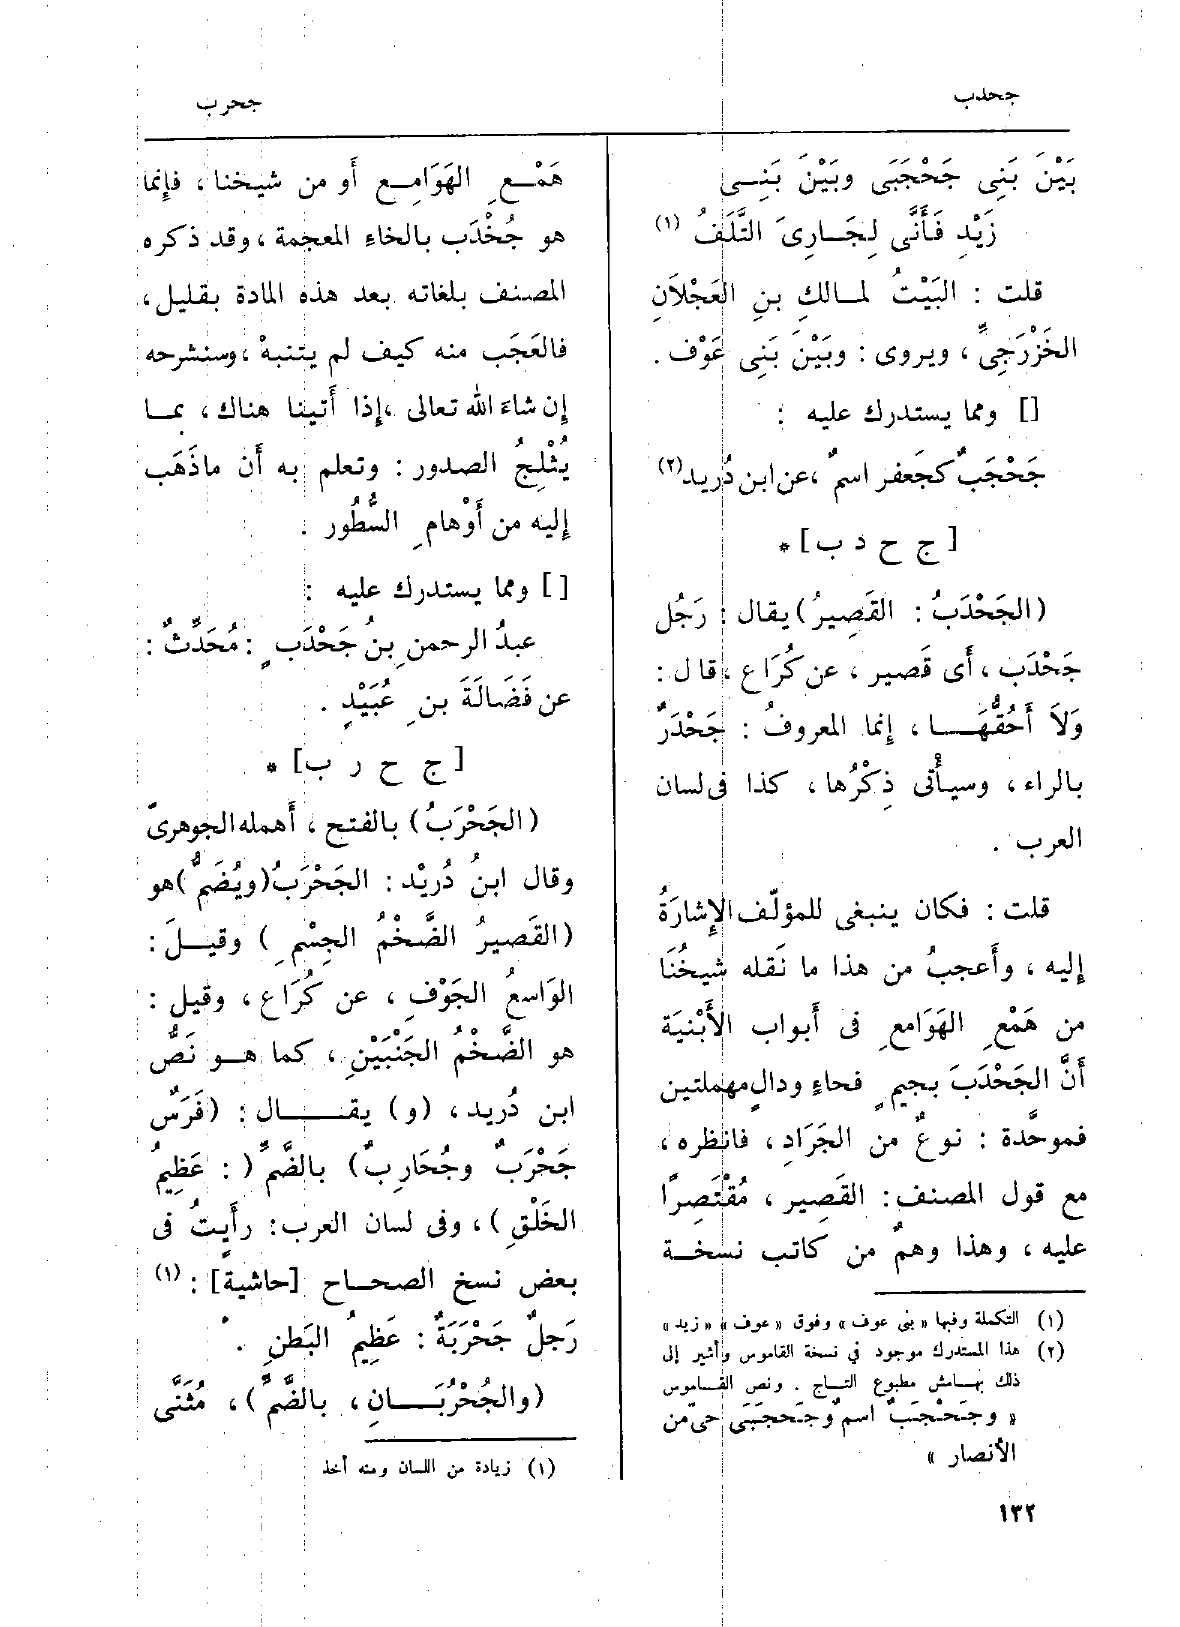 جحدب
جحرب
بَيْنَ بَنِى جَحْجَبَى وبَيْنَ بَنِــى
زَيْدٍ فَأَنَّى لِجَــارِىَ التَّلَفُ (١)
قلت : البَيْتُ لمــالكِ بنِ العَجْلاَنِ
الخَزْرَجِىِّ ، ويروى : وبَيْنَ بَنِى عَوْف .
[] ومما يستدرك عليه :
جَحْجَبٌ كجَعفر اسمٌ ،عن ابن دُريد (٢)
[ ج ح د ب ] *
(الجَحْدَبُ : القَصِيرُ) يقال : رَجُل
جَحْدَب ، أى قَصير ، عن كُرَاع ، قال :
وَلاَ أَحُقُّهَــا ، إنما المعروفُ : جَحْدَرٌ
بالراء ، وسيأْتى ذِكْرُها ، كذا فى لسان
العرب .
قلت : فكان ينبغى للمؤلّف الإشارَةُ
إليه ، وأَعجبُ من هذا ما نَقله شيخُنَا
من هَمْعِ الهَوَامعِ فى أبواب الأَبْنِيَة
أَنَّ الجَحْدَبَ بجيمٍ فحاءٍ ودالٍ مهملتين
فموحَّدة : نوعٌ من الجَرَادِ ، فانظره ،
مع قول المصنف : القَصِير ، مُقْتَصِرًا
عليه ، وهذا وهمٌ من كاتب نسخــة
(١) التكملة وفيها « بنى عوف » وفوق « عوف » « زيد »
(٢) هذا المستدرك موجود في نسخة القاموس وأشير إلى
ذلك بهــامش مطبوع التــاج . ونص القــاموس
« وجَحْجَبٌ اسمٌ وجَحجَبَى حى من
الأنصار »
هَمْــعِ الهَوَامِــع أَو من شيخنا ، فإنما
هو جُخْدَب بالخاءِ المعجمة ، وقد ذكره
المصنف بلغاته بعد هذه المادة بقليل ،
فالعَجَب منه كيف لم يتنبهْ ،وسنشرحه
إن شاءَ الله تعالى ،إذا أَتينا هناك ، بمــا
يُثْلِجُ الصدور : وتعلم به أَن ماذَهَب
إليه من أَوْهامِ السُّطُور .
[] ومما يستدرك عليه :
عبدُ الرحمنِ بنُ جَحْدَبٍ : مُحَدِّثٌ :
عن فَضَالَةَ بنِ عُبَيْدٍ .
[ ج ح ر ب ] *
(الجَحْرَبُ) بالفتح ، أَهمله الجوهرىّ
وقال ابنُ دُريْد : الجَحْرَبُ (ويُضَمُّ ) هو
(القَصيرُ الضَّخْمُ الجِسْمِ ) وقيــلَ :
الوَاسعُ الجَوْفِ ، عن كُرَاع ، وقيل :
هو الضَّخْمُ الجَنْبَيْنِ ، كما هــو نَصُّ
ابن دُريد ، (و) يقــــال : (فَرَسٌ
جَحْرَبٌ وجُحَاربٌ) بالضَّمِّ ( : عَظِيمُ
الخَلْقِ ) ، وفى لسان العرب : رأَيتُ فى
بعضِ نسخ الصحــاح [حاشية] : (١)
رَجلٌ جَحْرَبَةٌ : عَظِيمُ البَطنِ .
(والجُحْرُبَــــانِ ، بالضَّمِّ ) ، مُثَنَّى
(١) زيادة من اللسان ومنه أخذ
١٣٢